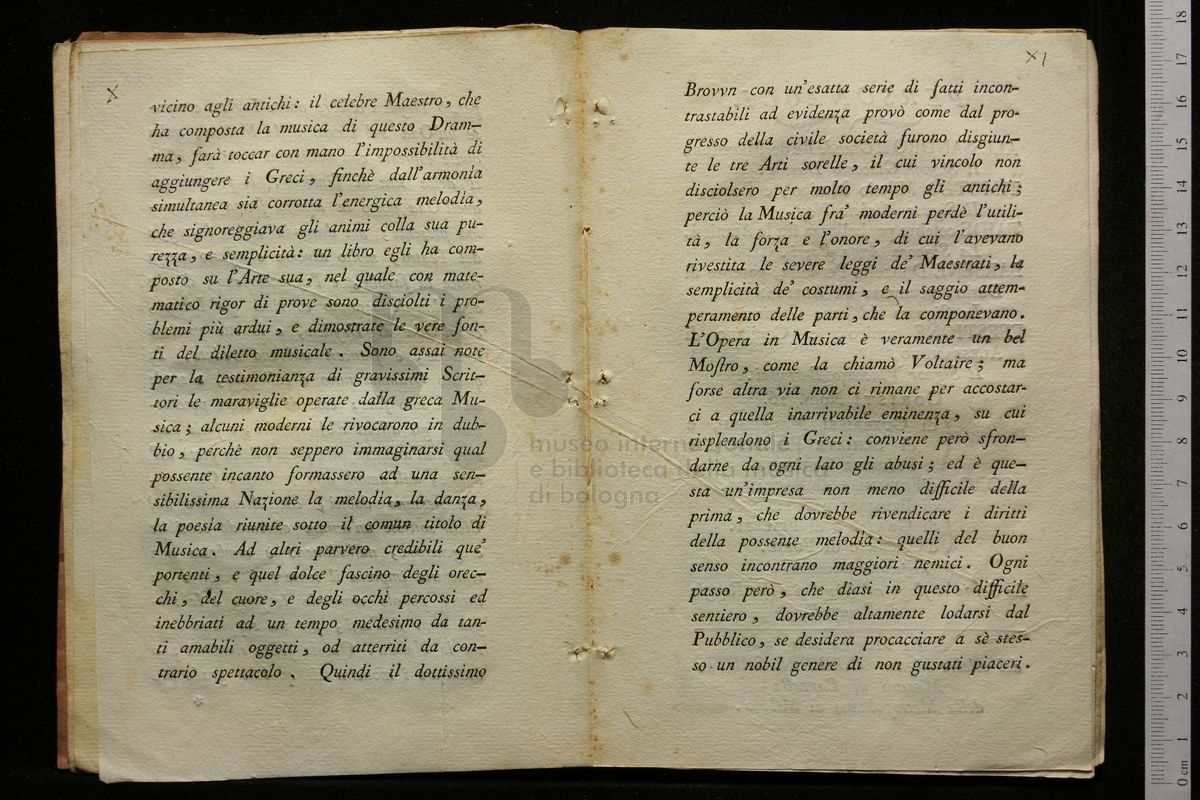 X
vicino agli antichi: il celebre Maestro, che
ha composta la musica di questo Dram-
ma, farà toccar con mano l'impossibilità di
aggiungere i Greci, finchè dall'armonia
simultanea sia corrotta l'energica melodia,
che signoreggiava gli animi colla sua pu-
rezza, e semplicità: un libro egli ha com-
posto su l'Arte sua, nel quale con mate-
matico rigor di prove sono disciolti i pro-
blemi più ardui, e dimostrate le vere fon-
ti del diletto musicale. Sono assai note
per la testimonianza di gravissimi Scrit-
tori le maraviglie operate dalla greca Mu-
sica; alcuni moderni le rivocarono in dub-
bio, perchè non seppero immaginarsi qual
possente incanto formassero ad una sen-
sibilissima Nazione la melodia, la danza,
la poesia riunite sotto il comun titolo di
Musica. Ad altri parvero credibili que'
portenti, e quel dolce fascino degli orec-
chi, del cuore, e degli occhi percossi ed
inebbriati ad un tempo medesimo da tan-
ti amabili oggetti, od atterriti da con-
trario spettacolo. Quindi il dottissimo
XI
Brovvn con un'esatta serie di fatti incon-
trastabili ad evidenza provò come dal pro-
gresso della civile società furono disgiun-
te le tre Arti sorelle, il cui vincolo non
disciolsero per molto tempo gli antichi;
perciò la Musica fra' moderni perdè l'utili-
tà, la forza e l'onore, di cui l'avevano
rivestita le severe leggi de' Maestrati, la
semplicità de' costumi, e il saggio attem-
peramento delle parti, che la componevano.
L'Opera in Musica è veramente un bel
Mostro, come la chiamò Voltaire; ma
forse altra via non ci rimane per accostar-
ci a quella inarrivabile eminenza, su cui
risplendono i Greci: conviene però sfron-
darne da ogni lato gli abusi; ed è que-
sta un'impresa non meno difficile della
prima, che dovrebbe rivendicare i diritti
della possente melodia: quelli del buon
senso incontrano maggiori nemici. Ogni
passo però, che diasi in questo difficile
sentiero, dovrebbe altamente lodarsi dal
Pubblico, se desidera procacciare a sè stes-
so un nobil genere di non gustati piaceri.
museo internazionale
e biblioteca della musica
di bologna
0 cm 1 2 3 4 5 6 7 8 9 10 11 12 13 14 15 16 17 18